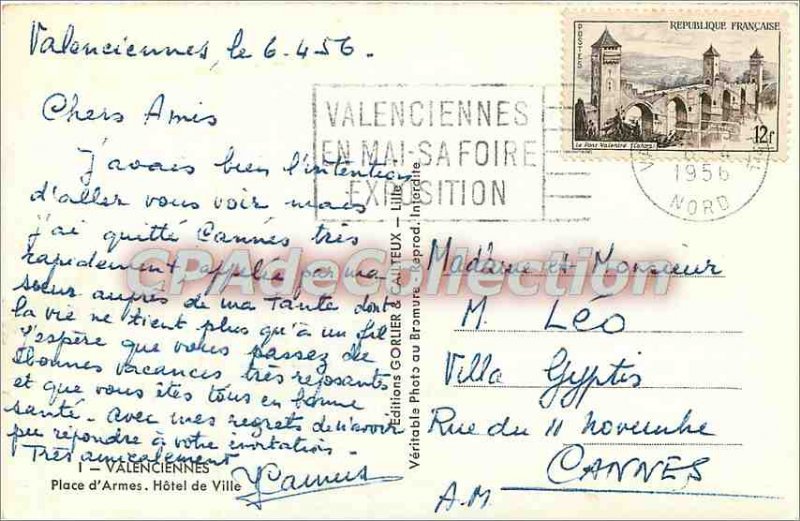 Valenciennes, le 6.4.56.
Chers Amis
J'avais bien l'intention
d'aller vous voir mais
j'ai quitté Cannes très
rapidement, appelée par ma
sœur auprès de ma Tante dont
la vie ne tient plus qu'à un fil
J'espère que vous passez de
bonnes vacances très reposantes
et que vous êtes tous en bonne
santé. Avec mes regrets de n'avoir
pu répondre à votre invitation.
Très amicalement
1 — VALENCIENNES
Place d'Armes. Hôtel de Ville
Éditions GORLIER & CAILTEUX — Lille
Véritable Photo au Bromure - Reprod. Interdite
VALENCIENNES
EN MAI-SA FOIRE
EXPOSITION
POSTES
REPUBLIQUE FRANÇAISE
Le Pont Valentré (Cahors)
12f
1956
NORD
CPAdeCollection
Madame et Monsieur
M. LÉO
Villa Gyptis
Rue du 11 novembre
CANNES
A.M.